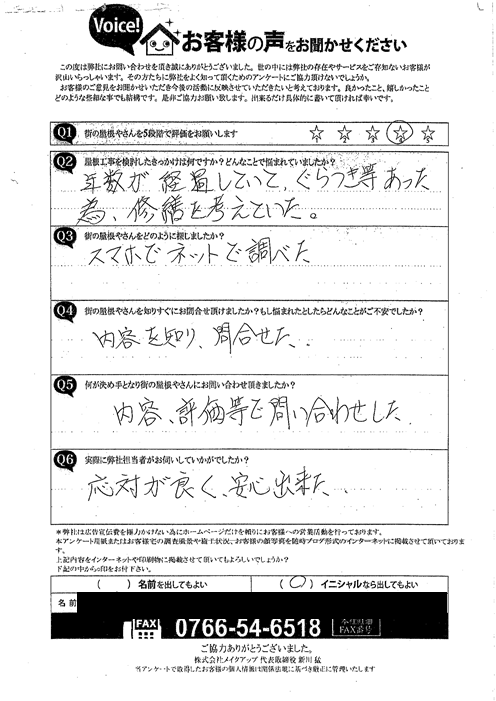 Voice!
お客様の声をお聞かせください
この度は弊社にお問い合わせを頂き誠にありがとうございました。世の中には弊社の存在やサービスをご存知ないお客様が
沢山いらっしゃいます。その方たちに弊社をよく知って頂くためのアンケートにご協力頂けないでしょうか。
お客様のご意見をお聞かせいただき今後の活動に反映させていただきたいと考えております。良かったこと、嬉しかったこと
どのような些細な事でも結構です。是非ご協力お願い致します。出来るだけ具体的に書いて頂ければ幸いです。
Q1 街の屋根やさんを5段階で評価をお願いします
1 2 3 4 5
Q2 屋根工事を検討したきっかけは何ですか?どんなことで悩まれていましたか?
年数が経過していて、ぐらつき等あった
為、修繕を考えていた。
Q3 街の屋根やさんをどのように探しましたか?
スマホでネットで調べた
Q4 街の屋根やさんを知りすぐにお問合せ頂けましたか?もし悩まれたとしたらどんなことがご不安でしたか?
内容を知り、問合せた、
Q5 何が決め手となり街の屋根やさんにお問い合わせ頂きましたか?
内容、評価等で問い合わせした
Q6 実際に弊社担当者がお伺いしていかがでしたか?
応対が良く、安心出来た、
*弊社は広告宣伝費を極力かけない為にホームページだけを頼りにお客様への営業活動を行っております。
本アンケート用紙またはお客様宅の調査風景や施工状況、お客様の顔写真を随時ブログ形式のインターネットに掲載させて頂いておりま
す。
上記内容をインターネットや印刷物に掲載させて頂いてもよろしいでしょうか?
下記の中から○印をお付下さい。
( ) 名前を出してもよい (○) イニシャルなら出してもよい
名前
FAX 0766-54-6518 FAX番号
ご協力ありがとうございました。
株式会社メイクアップ 代表取締役 新川 猛
当アンケートで取得したお客様の個人情報は関係法規に基づき厳正に管理いたします